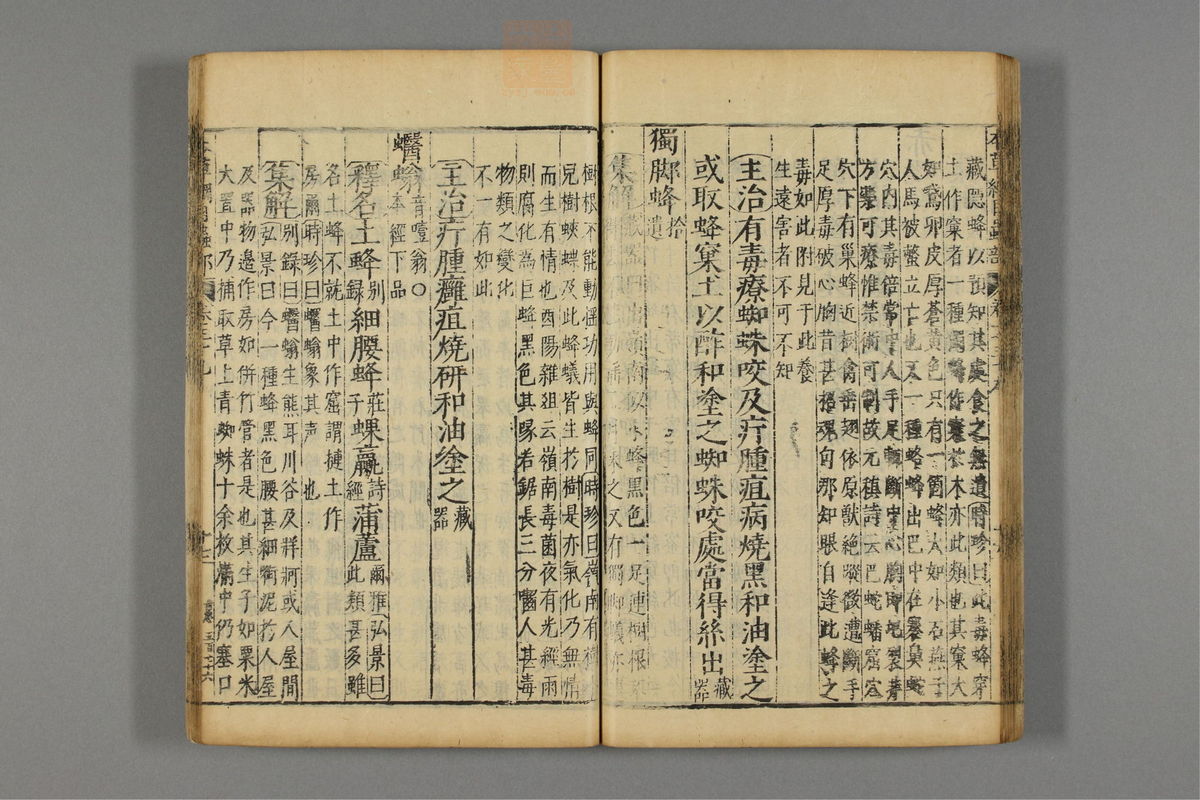 藏隱蜂以預知其處食之無遺時珍曰此毒蜂穿
土作窠者一種獨蜂作窠於木亦此類也其窠大
如鵞卵皮厚蒼黃色只有一箇蜂大如小石燕子
人馬被螫立亡也又一種蜂蜂出巴中在褰鼻蛇
穴內其毒倍常中人手足輒斷中心胸即圯裂非
方藥可療惟禁術可制故元稹詩云巴蛇蟠窟穴
穴下有巢蜂近樹禽垂翅依原獸絶蹤微遭斷手
足厚毒破心胸昔甚招魂句那知眼自逢此蜂之
毒如此附見于此養
生遠害者不可不知
主治有毒療蜘蛛咬及疔腫疽病燒黑和油塗之
或取蜂窠土以酢和塗之蜘蛛咬處當得絲出藏器
獨脚蜂拾遺
集解藏器曰出嶺南似小蜂黑色一足連樹根
之又有獨脚蟻亦
樹根不能動搖功用與蜂同時珍曰嶺南有樹
兒樹蛺蝶及此蜂蟻皆生於樹是亦氣化乃無情
而生有情也酉陽雜俎云嶺南毒菌夜有光經雨
則腐化為巨蜂黑色其喙若鋸長三分嚙人甚毒
物類之變化
不一有如此
主治疔腫癰疽燒研和油塗之藏器
蠮螉音噎翁○本經下品
釋名土蜂別録細腰蜂莊子蜾蠃詩經蒲蘆爾雅弘景曰此類甚多雖
名土蜂不就土中作窟謂摙土作
房爾時珍曰蠮螉象其声也
集解別録曰蠮螉生熊耳川谷及牂牁或人屋間
弘景曰今一種蜂黑色腰甚細銜泥於人屋
及器物邊作房如併竹管者是也其生子如粟米
大置中乃捕取草上青蜘蛛十余枚滿中仍塞口
本草綱目蟲部 卷三十九 十七